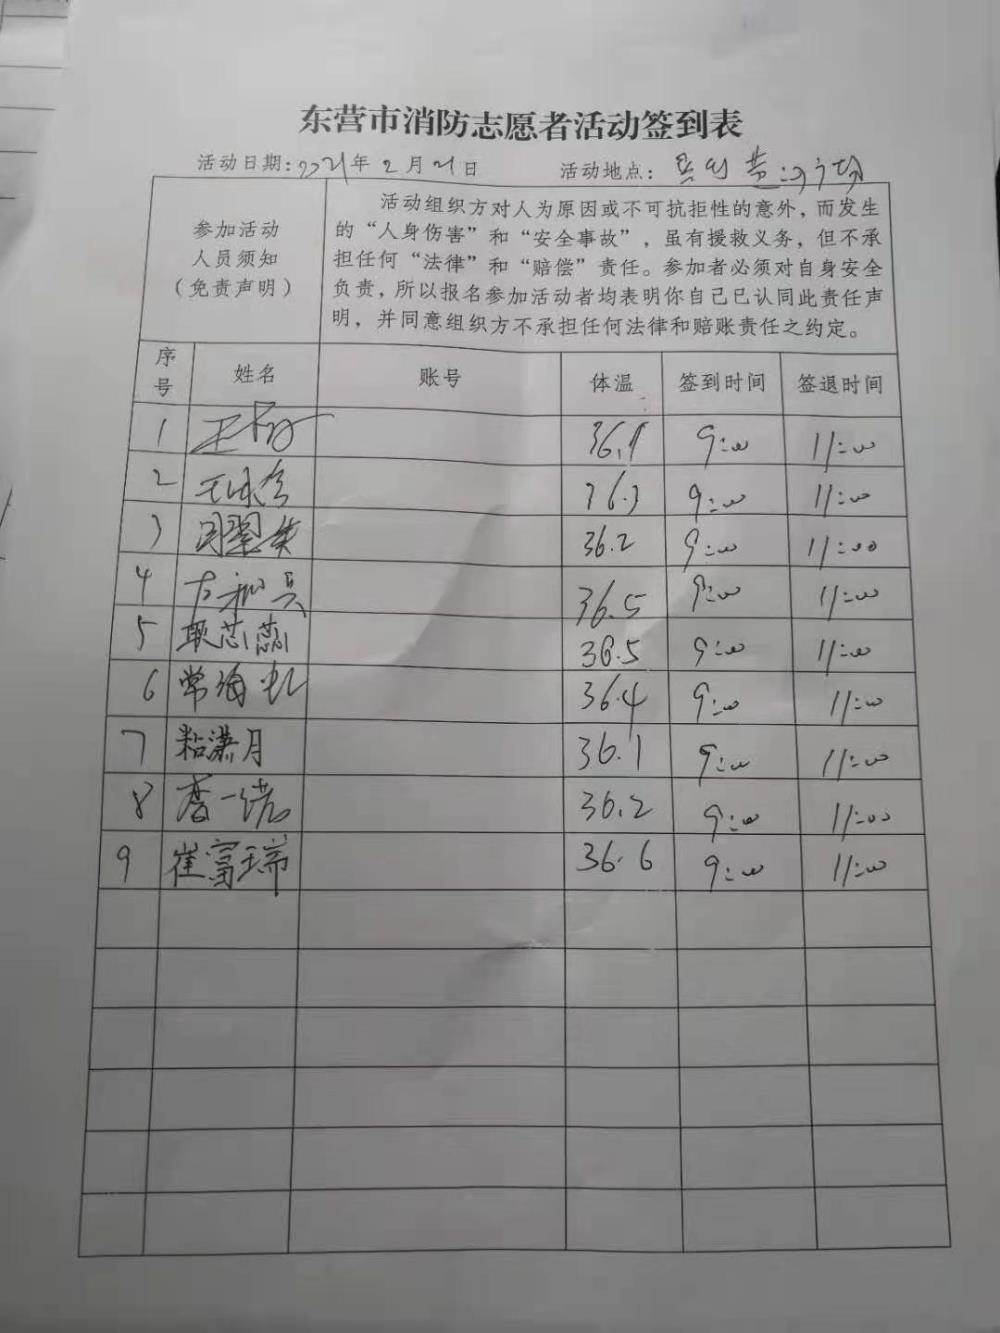 东营市消防志愿者活动签到表
活动日期：2021年2月21日 活动地点：
参加活动
人员须知
（免责声明）
活动组织方对人为原因或不可抗拒性的意外，而发生
的“人身伤害”和“安全事故”，虽有援救义务，但不承
担任何“法律”和“赔偿”责任。参加者必须对自身安全
负责，所以报名参加活动者均表明你自己已认同此责任声
明，并同意组织方不承担任何法律和赔账责任之约定。
序号 姓名 账号 体温 签到时间 签退时间
1 9:00 11:00
2 36.3 9:00 11:00
3 36.2 9:00 11:00
4 36.5 9:00 11:00
5 耿芯蕊 36.5 9:00 11:00
6 常海虹 36.4 9:00 11:00
7 粘潇月 36.1 9:00 11:00
8 36.2 9:00 11:00
9 崔富瑞 36.6 9:00 11:00